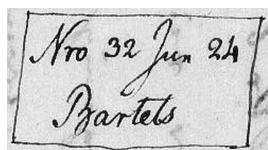 Nro 32 Jun 24
Bartels